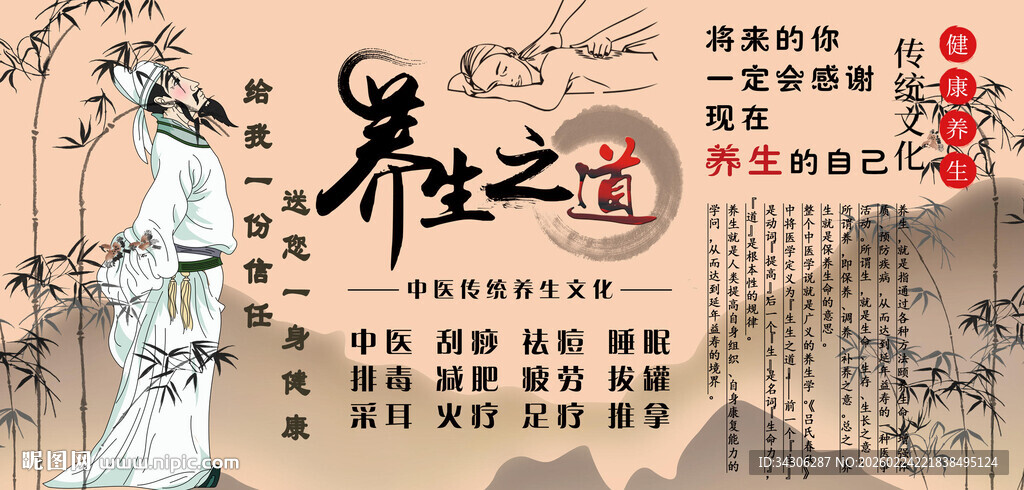 给我一份信任
送您一身健康
养生之道
中医传统养生文化
中医 刮痧 祛痘 睡眠
排毒 减肥 疲劳 拔罐
采耳 火疗 足疗 推拿
将来的你
一定会感谢
现在
养生的自己
传统文化
健康养生
养生,就是指通过各种方法颐养生命、增强体
质、预防疾病,从而达到延年益寿的一种医
活动。所谓生,就是生命、生存、生长之意
所谓养,即保养、调养、补养之意。总之,养
生就是保养生命的意思。
整个中医学说就是广义的养生学。《吕氏春秋》
中将医学定义为『生生之道』——前一个『生』
是动词『提高』后一个『生』是名词『生命力』,
『道』是根本性的规律。
养生就是人类提高自身组织、自身康复能力的
学问,从而达到延年益寿的境界。
昵图网 www.nipic.com
ID:34306287 NO:20260224221838495124